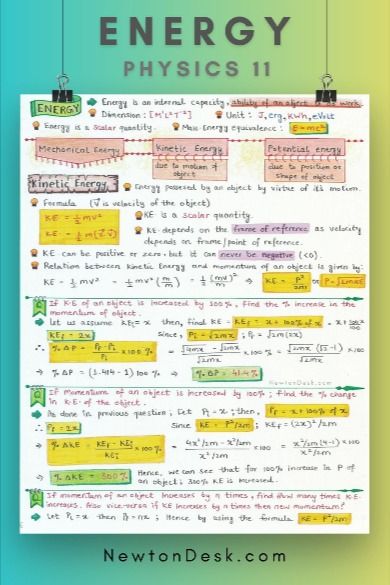 ENERGY
PHYSICS 11
ENERGY → Energy is an internal capacity, ability of an object to do work.
Dimension : [M¹L²T⁻²] Unit : J, erg, kWh, eVolt
Energy is a scalar quantity. Mass-Energy equivalence : E=mc²
Mechanical Energy Kinetic Energy Potential energy
due to motion of object due to position or shape of object
Kinetic Energy Energy possessed by an object by virtue of its motion.
Formula (v⃗ is velocity of the object)
KE = ½mv² KE is a scalar quantity.
KE = ½m(v⃗.v⃗) KE depends on the frame of reference as velocity
depends on frame/point of reference.
KE can be positive or zero, but it can never be negative (<0).
Relation between kinetic Energy and momentum of an object is given by:
KE = ½mv² = ½mv²(m/m) = ½(mv)²/m ⇒ KE = P²/2m or P = √2mKE
Q If K·E of an object is increased by 100%, find the % increase in the
momentum of object.
→ Let us assume KEᵢ = x then, final KE = KE_f = x + 100% of x = x + 100x/100
KE_f = 2x Since, Pᵢ = √2mx ; P_f = √2m(2x)
∴ % ΔP = (P_f - Pᵢ)/Pᵢ x 100 % = (√4mx - √2mx)/√2mx x 100 % = √2mx(√2-1)/√2mx x100
⇒ % ΔP = (1.414-1) 100 % ⇒ % ΔP = 41.4%
NewtonDesk.com
Q If Momentum of an object is increased by 100% ; find the % change
in K·E· of the object.
→ As done in previous question, Let Pᵢ = x ; then, P_f = x + 100% of x
∴ P_f = 2x Since KE = P²/2m ; KE_f = (2x)²/2m
% ΔKE = (KE_f - KEᵢ)/KEᵢ x 100% = (4x²/2m - x²/2m)/(x²/2m) x100 = x²/2m(4-1)/(x²/2m) x 100%
⇒ % ΔKE = 300% Hence, we can see that for 100% increase in P of
an object; 300% KE is increased.
Q If momentum of an object increases by n times, find how many times K·E·
increases. Also vice-versa if KE increases by n times then new momentum?
→ Let Pᵢ = x then P_f = nx ; Hence by using the formula KE = P²/2m
NewtonDesk.com